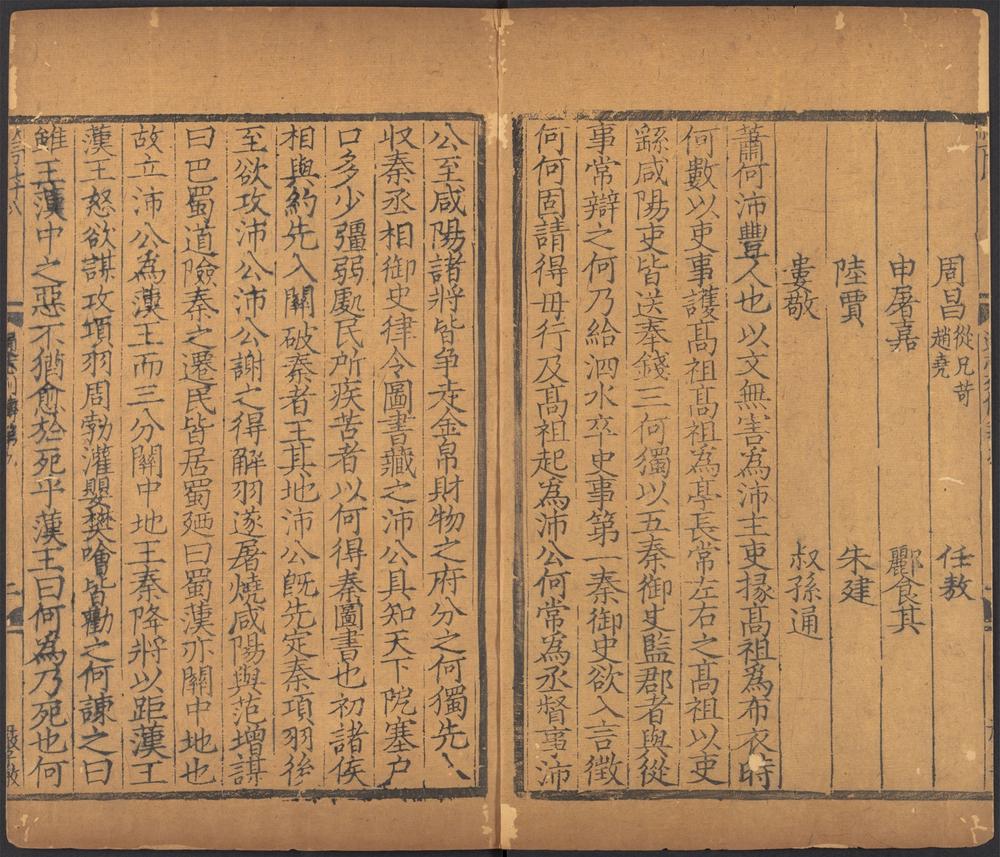 周昌 從兄苛 趙堯 任敖
申屠嘉 酈食其
陸賈 朱建
婁敬 叔孫通
蕭何沛豐人也以文無害為沛主吏掾高祖為布衣時
何數以吏事護高祖高祖為亭長常左右之高祖以吏
繇咸陽吏皆送奉錢三何獨以五秦御史監郡者與從
事常辯之何乃給泗水卒史事第一秦御史欲入言徵
何何固請得毋行及高祖起為沛公何常為丞督事沛
公至咸陽諸將皆爭走金帛財物之府分之何獨先入
收秦丞相御史律令圖書藏之沛公具知天下阨塞戶
口多少彊弱處民所疾苦者以何得秦圖書也初諸侯
相與約先入關破秦者王其地沛公既先定秦項羽後
至欲攻沛公沛公謝之得解羽遂屠燒咸陽與范增謀
曰巴蜀道險秦之遷民皆居蜀廼曰蜀漢亦關中地也
故立沛公為漢王而三分關中地王秦降將以距漢王
漢王怒欲謀攻項羽周勃灌嬰樊噲皆勸之何諫之曰
雖王漢中之惡不猶愈於死乎漢王曰何為乃死也何